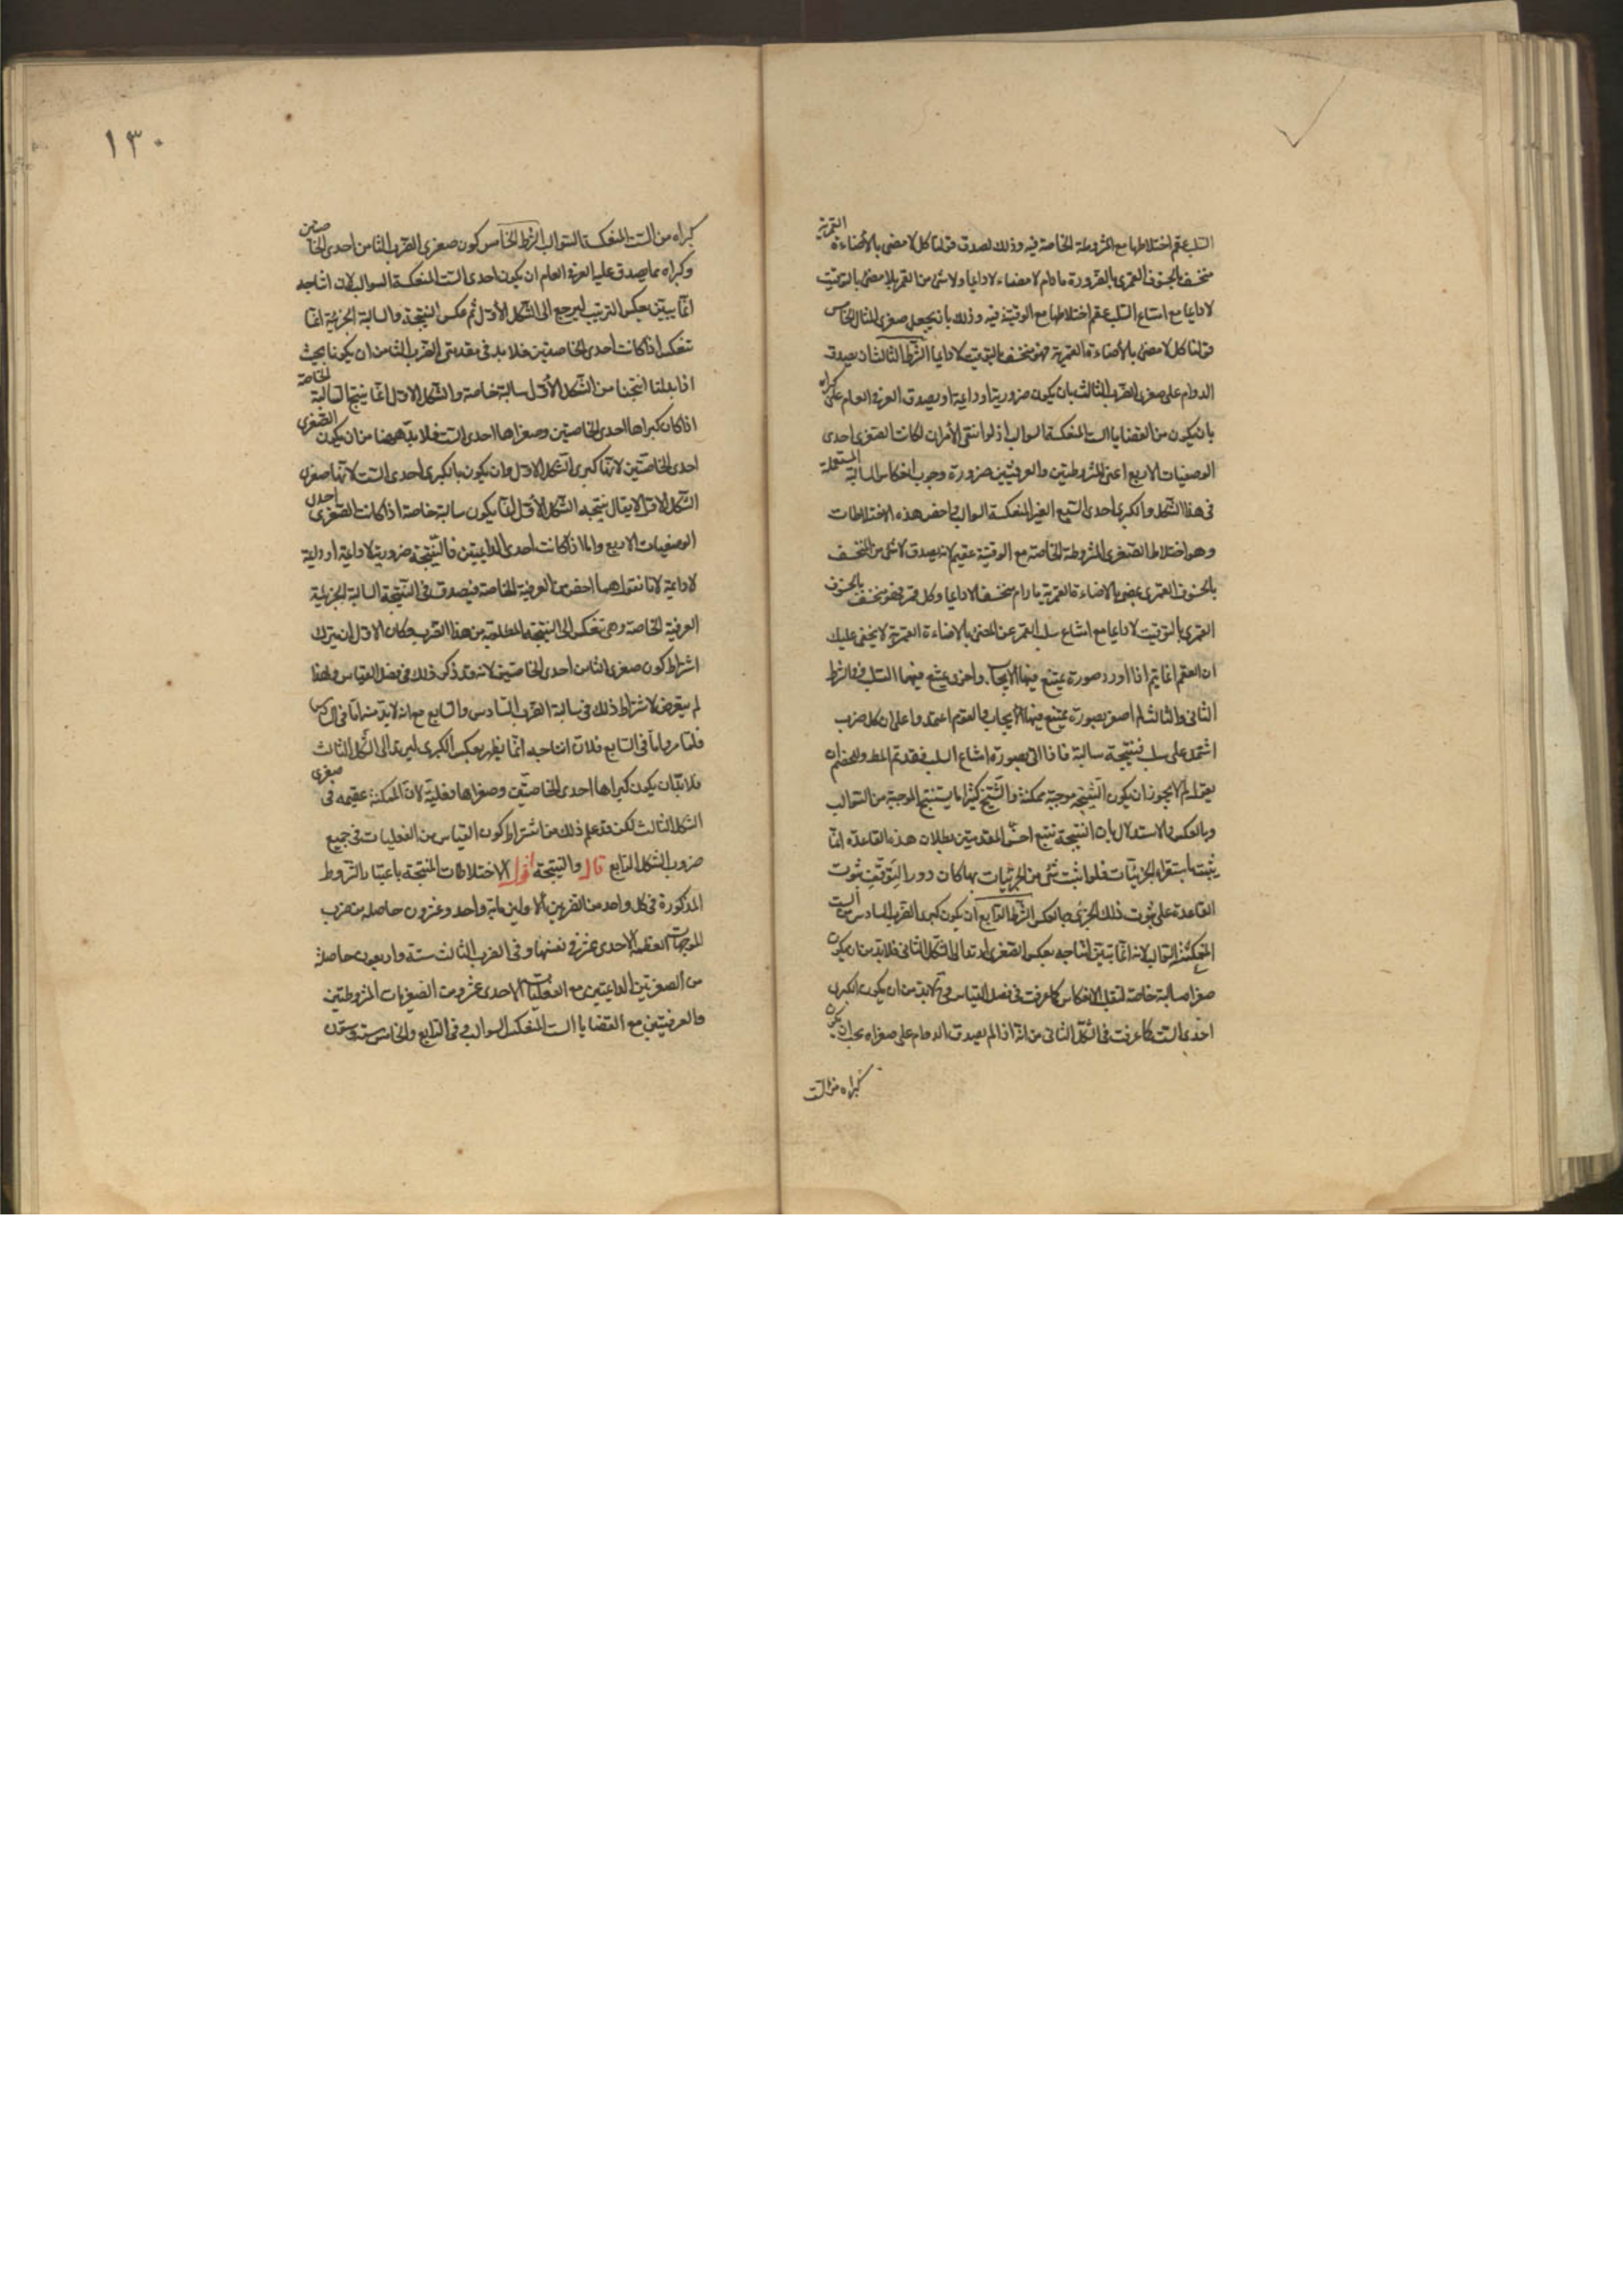 السلب عقم اختلاطها مع المشروطة الخاصة فيه وذلك لصدق قولنا كل لا مضئ بالأضاءة القمرية
منخسف بالخسوف القمرى بالضرورة ما دام لا مضياء لا دايما ولا شئ من القمر بلا مضئ بالتوقيت
لا دايما مع امتناع السلب عقم اختلاطها مع الوقتية فيه وذلك بان يجعل صغرى المثال الخامس
قولنا كل لا مضئ بالأضاءة القمرية فهو منخسف بالتوقيت لا دايما الشرط الثالث ان يصدق
الدوام على صغرى الضرب الثالث بان يكون ضرورية او دايمة او يصدق العرفى العام على كبراه
بان يكون من القضايا الست المنعكسة السوالب اذ لو انتفى الأمران لكانت الصغرى احدى
الوصفيات الاربع اعنى المشروطتين والعرفيتين ضرورة وجوب انعكاس السالبة المستعملة
فى هذا الشكل والكبرى احدى السبع الغير المنعكسة السوالب واخص هذه الاختلاطات
وهو اختلاط الصغرى المشروطة الخاصة مع الوقتية عقيم لانه يصدق لا شئ من المنخسف
بالخسوف القمرى بمضئ بالاضاءة القمرية ما دام منخسفا لا دايما وكل قمر فهو منخسف بالخسوف
القمرى بالتوقيت لا دايما مع امتناع سلب القمر عن المضئ بالاضاءة القمرية لا يخفى عليك
ان العقم انما يتم اذا اورد صورة يمتنع فيها الايجاب واخرى يمتنع فيها السلب ففى الشرط
الثانى والثالث لم اصغر بصورة يمتنع فيها الايجاب والعقم اعتمد واعلى ان كل ضرب
اشتمل على سلب فنتيجة سالبة فاذا اتى بصورة امتناع السلب فقد تم المط وللخصم ان
يقول لم لا يجوز ان يكون النتيجة موجبة ممكنة والشيخ كثيرا ما يستنتج الموجبة من السوالب
وبالعكس والاستدلال بان النتيجة تتبع اخس المقدمتين بطلان هذه القاعدة انما
يثبت باستقراء الجزئيات فلو اثبت شئ من الجزئيات بها كان دورا لتوقف ثبوت
القاعدة على ثبوت ذلك الجزئى وبالعكس الشرط الرابع ان يكون كبرى الضرب السادس من الست
المنعكسة السوالب لانه انما يتبين انتاجه بعكس الصغرى ليرتد الى الشكل الثانى فلا بد من ان يكون
صغراه سالبة خاصة لتقبل الانعكاس كما عرفت فى فصل القياس وح لا بد من ان يكون الكبرى
احدى الست كما عرفت فى الشكل الثانى من انه اذا لم يصدق الدوام على صغراه يجب ان يكون
كبراه من الست
١٣٠
كبراه من الست المنعكسة السوالب الشرط الخامس كون صغرى الضرب الثامن احدى الخاصتين
وكبراه مما يصدق عليه العرفى العام ان يكون احدى الست المنعكسة السوالب لان انتاجه
انما يبين بعكس الترتيب ليرجع الى الشكل الأول ثم عكس النتيجة والسالبة الجزئية انما
تنعكس اذا كانت احدى الخاصتين فلا بد فى مقدمتى الضرب الثامن ان يكونا بحيث
اذا بدلنا انتجنا من الشكل الأول سالبة خاصة والشكل الاول انما ينتج السالبة الخاصة
اذا كان كبراها احدى الخاصتين وصغراها احدى الست فلا بد ههنا من ان يكون الصغرى
احدى الخاصتين لانها كبرى الشكل الاول وان يكون بالكبرى احدى الست لانها صغرى
الشكل الاول لا يقال نتيجة الشكل الأول انما يكون سالبة خاصة اذا كانت الصغرى احدى
الوصفيات الاربع واما اذا كانت احدى الدايمتين فالنتيجة ضرورية لا دايمة او دايمة
لا دايمة لانا نقول هما اخص من العرفية الخاصة فيصدق فى النتيجة السالبة الجزئية
العرفية الخاصة وهى تنعكس الى النتيجة المطلوبة من هذا الضرب وكان الاول ان يترك
اشتراط كون صغرى الثامن احدى الخاصتين لانه قد ذكر ذلك فى فصل القياس ولهذا
لم يتعرض لاشتراط ذلك فى سالبة الضرب السادس والسابع مع انه لا بد منه اما فى السادس
فلما مر واما فى السابع فلان انتاجه انما يظهر بعكس الكبرى ليرتد الى الشكل الثالث
فلا بد ان يكون كبراها احدى الخاصتين وصغراها فعلية لان الممكنة عقيمة فى صغرى
الشكل الثالث لكن قد علم ذلك من اشتراط كون القياس من الفعليات فى جميع
ضروب الشكل الرابع قال والنتيجة اقول الاختلاطات المنتجة باعتبار الشروط
المذكورة فى كل واحد من الضربين الاولين ماية واحد وعشرون حاصله من ضرب
الموجهات الفعلية الاحدى عشر فى نفسها وفى الضرب الثالث ستة واربعون حاصلة
من الصغرتين الدايمتين مع الفعليات الاحدى عشر ومن الصغريات المشروطتين
والعرفيتين مع القضايا الست المنعكسة السوالب وفى الرابع والخامس ستة وستون